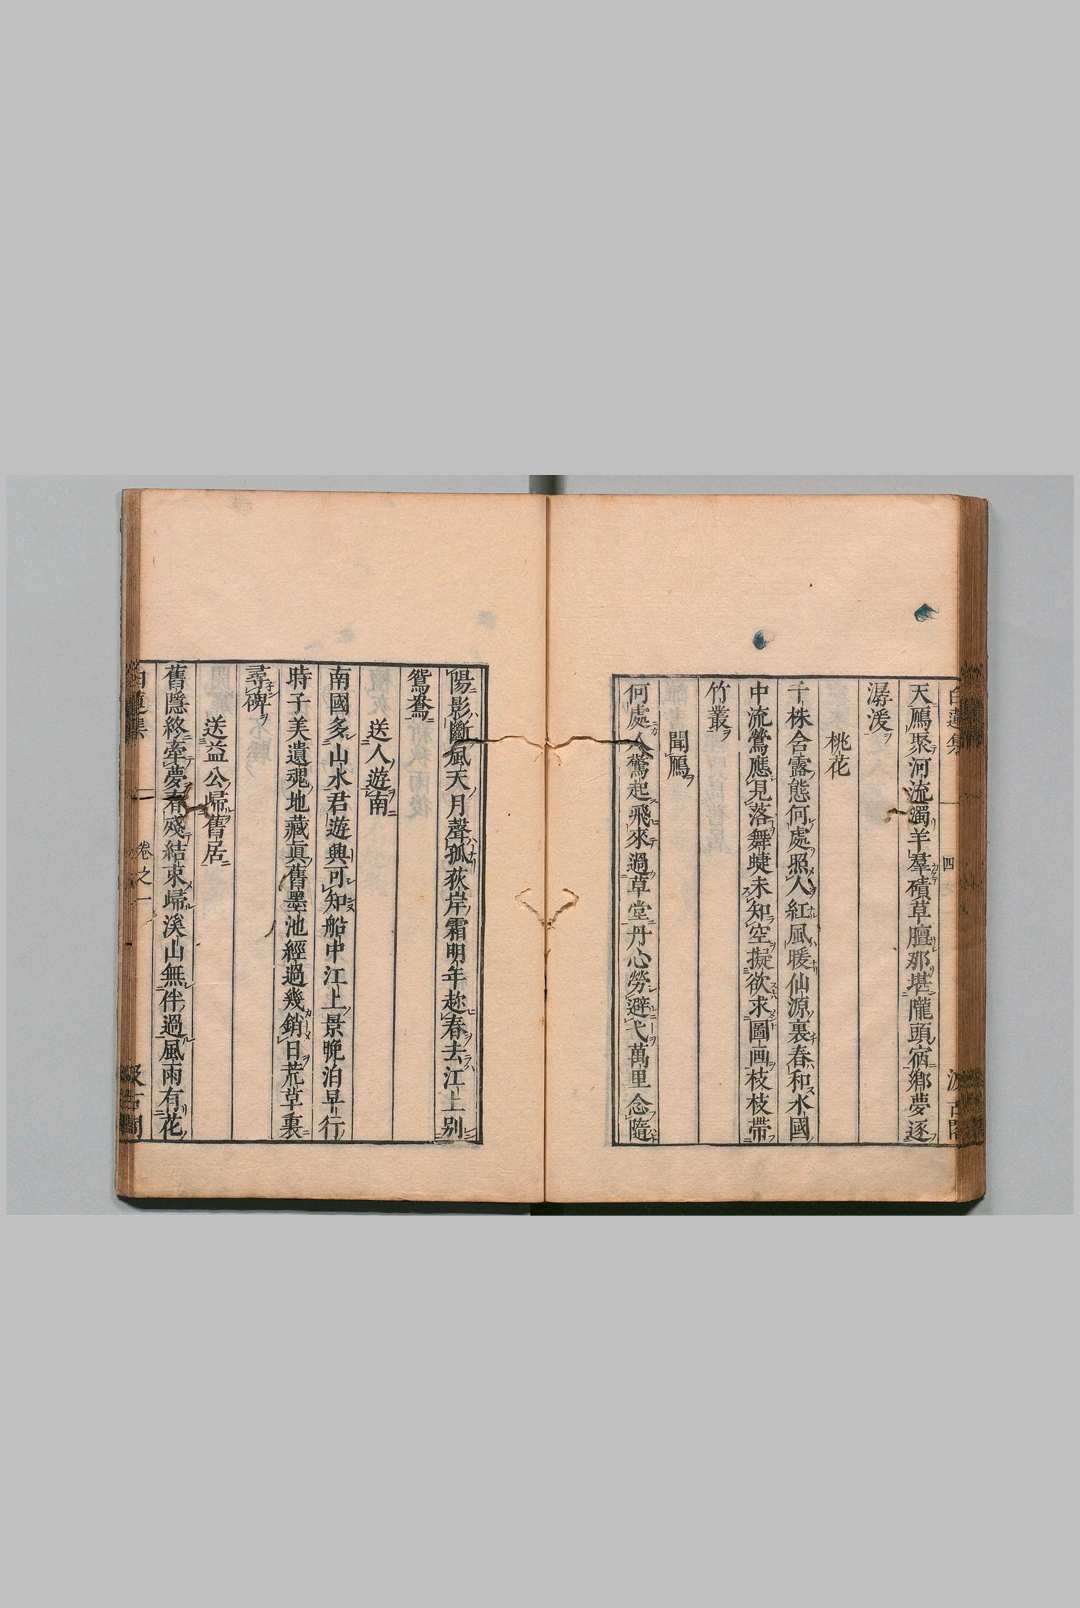 白蓮集 四 汲古閣
天鴈聚河流濁羊羣磧草膻那堪隴頭宿鄕夢逐
潺湲
桃花
千株含露態何處照人紅風暖仙源裏春和水國
中流鶯應見落舞蜨未知空擬欲求圖画枝枝帶
竹叢
聞鴈
何處人驚起飛來過草堂丹心勞避弋萬里念隨
陽影斷風天月聲孤荻岸霜明年趂春去江上别
鴛鴦
送人遊南
南國多山水君遊興可知船中江上景晚泊早行
時子美遺魂地藏真舊墨池經過幾銷日荒草裏
尋碑
送益公歸舊居
舊隱終牽夢春殘結束歸溪山無伴過風雨有花
白蓮集 卷之一 汲古閣